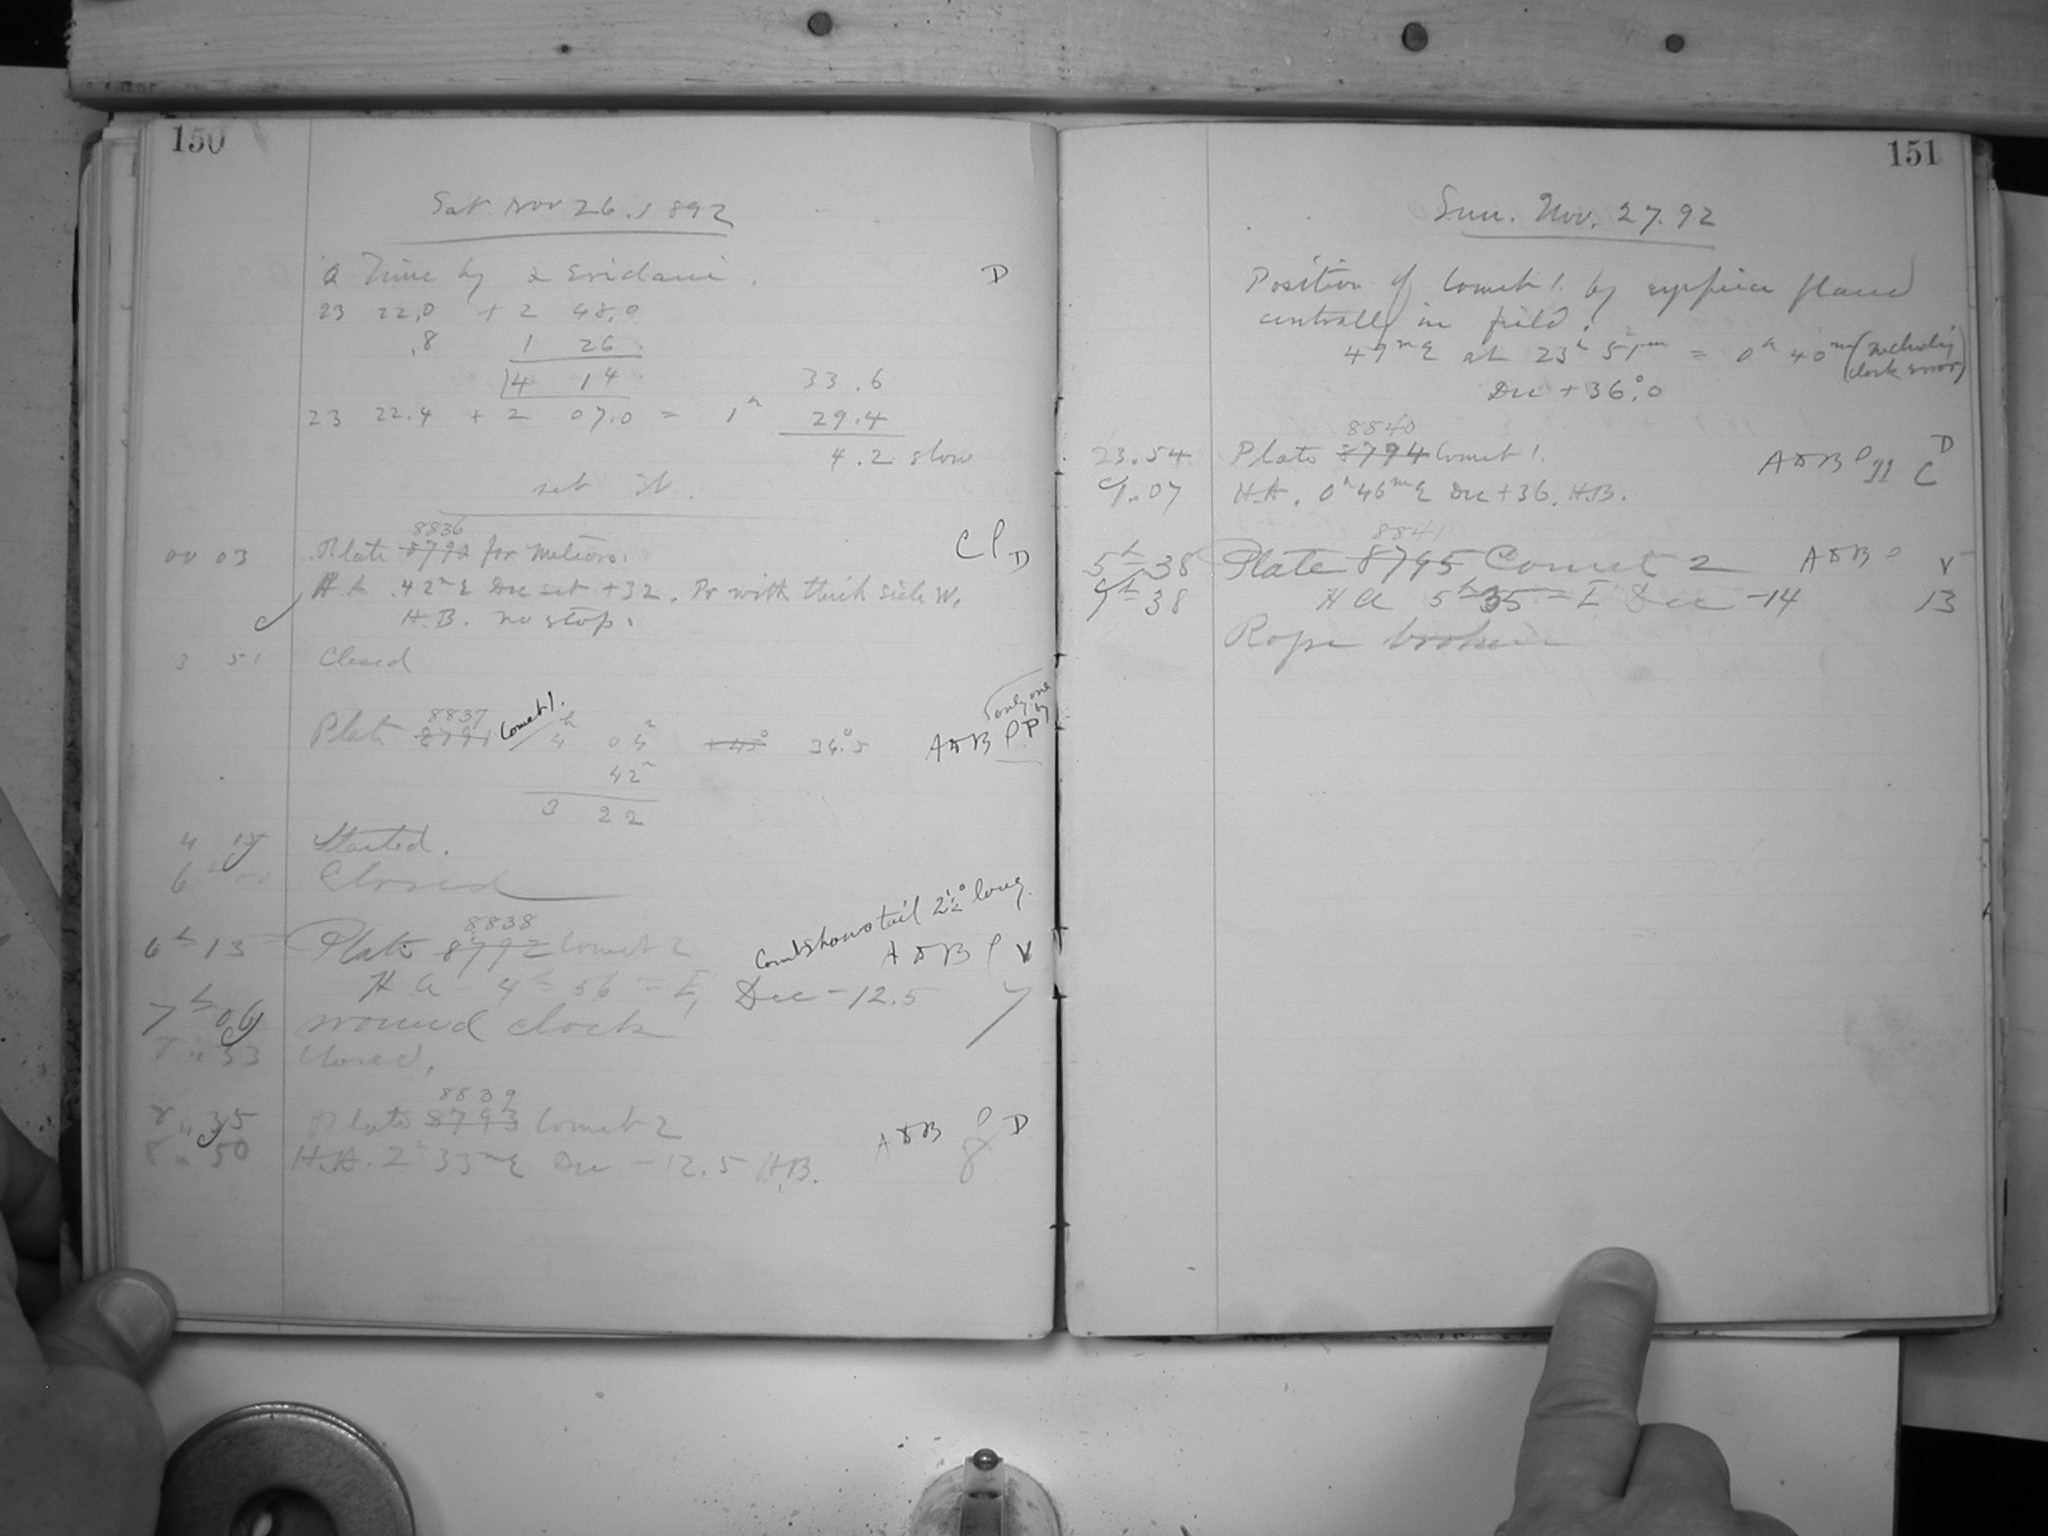 150
Sat. Nov 26. 1892
a Time by α Eridani. D
23 22.0 + 2 48.0
.8 1 26
4 14 33.6
23 22.4 + 2 07.0 = 1h 29.4
4.2 slow
set it.
8836
00 03 Plate 8790 for Meteors. C P D
H.A. 42m E Dec set +32. Pr with thick side W.
H.B. no stop.
3 51 Closed
only one by
8837 Comet 1.
Plate 8791 4h 04m +45° 36°.5 ADB P P
42m
3 22
4 15 Started.
6h 00 Closed
Comet shows tail 2½° long.
8838
6h 13 Plate 8792 Comet 2 ADB P V
H.a 4h 36m E, Dec -12.5 7
7h 06 wound clock
8 33 Closed.
8839
8 35 Plate 8793 Comet 2 ADB P D
8 50 H.A. 2h 33m E Dec -12.5 H.B. 8
151
Sun. Nov. 27. 92
Position of Comet 1. by eyepiece placed
centrally in field.
49m E at 23h 51m = 0h 40m (including
clock error)
Dec +36°.0
8840
23.54 Plate 8794 Comet 1. ADB P 11 C D
1.07 H.A. 0h 46m E Dec +36. H.B.
8841
5h 38 Plate 8795 Comet 2 ADB P V
7h 38 H a 5h 35m E, Dec -14 13
Rope broken